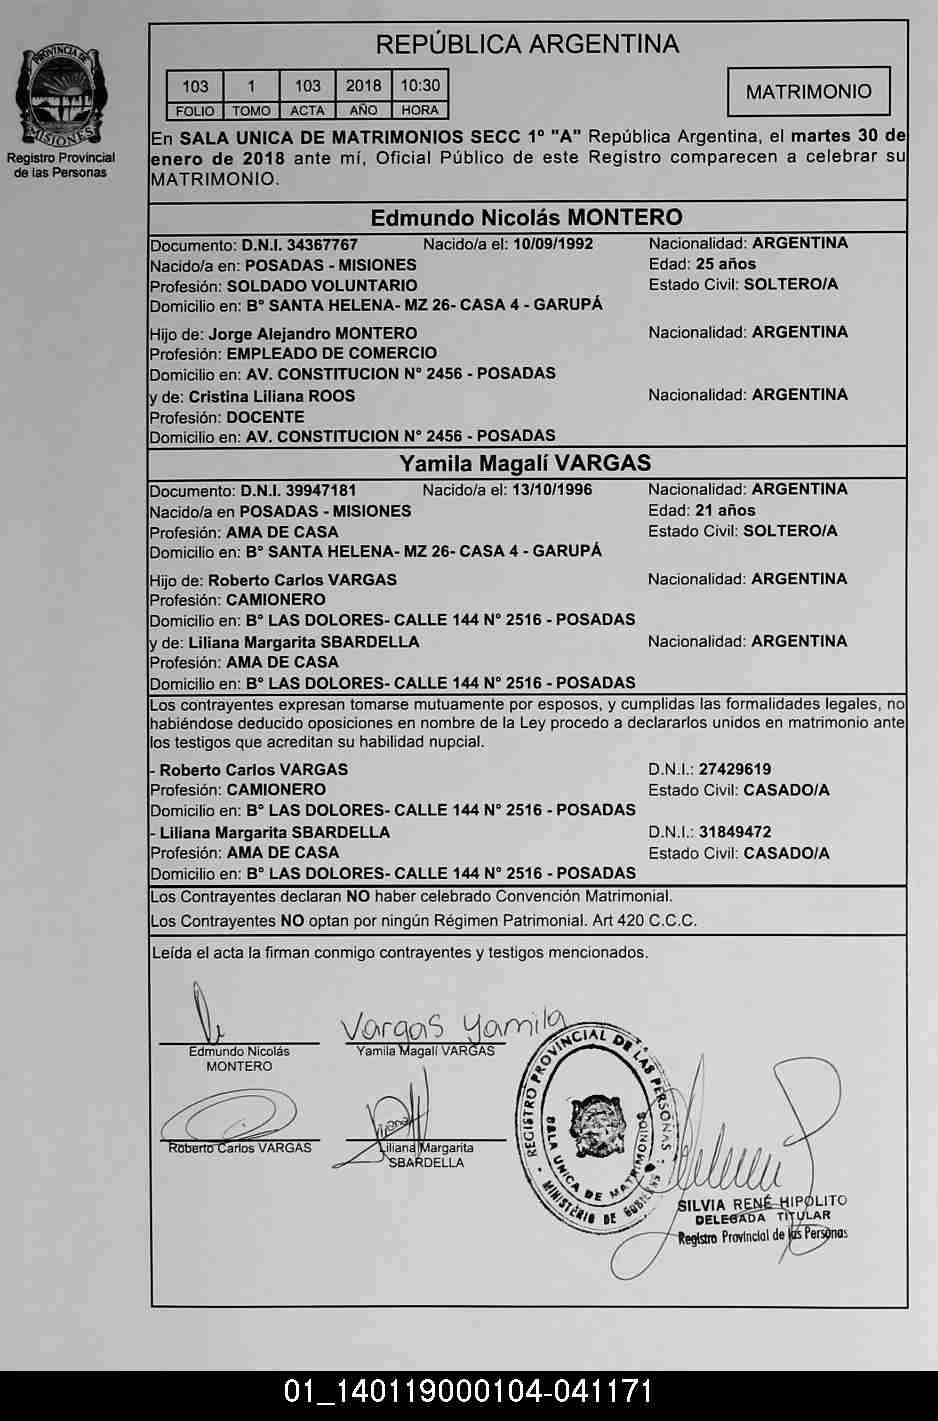 PROVINCIA DE
MISIONES
Registro Provincial
de las Personas
REPÚBLICA ARGENTINA
103 1 103 2018 10:30
FOLIO TOMO ACTA AÑO HORA
MATRIMONIO
En SALA UNICA DE MATRIMONIOS SECC 1º "A" República Argentina, el martes 30 de
enero de 2018 ante mí, Oficial Público de este Registro comparecen a celebrar su
MATRIMONIO.
Edmundo Nicolás MONTERO
Documento: D.N.I. 34367767 Nacido/a el: 10/09/1992 Nacionalidad: ARGENTINA
Nacido/a en: POSADAS - MISIONES Edad: 25 años
Profesión: SOLDADO VOLUNTARIO Estado Civil: SOLTERO/A
Domicilio en: B° SANTA HELENA- MZ 26- CASA 4 - GARUPÁ
Hijo de: Jorge Alejandro MONTERO Nacionalidad: ARGENTINA
Profesión: EMPLEADO DE COMERCIO
Domicilio en: AV. CONSTITUCION N° 2456 - POSADAS
y de: Cristina Liliana ROOS Nacionalidad: ARGENTINA
Profesión: DOCENTE
Domicilio en: AV. CONSTITUCION N° 2456 - POSADAS
Yamila Magalí VARGAS
Documento: D.N.I. 39947181 Nacido/a el: 13/10/1996 Nacionalidad: ARGENTINA
Nacido/a en POSADAS - MISIONES Edad: 21 años
Profesión: AMA DE CASA Estado Civil: SOLTERO/A
Domicilio en: B° SANTA HELENA- MZ 26- CASA 4 - GARUPÁ
Hijo de: Roberto Carlos VARGAS Nacionalidad: ARGENTINA
Profesión: CAMIONERO
Domicilio en: B° LAS DOLORES- CALLE 144 N° 2516 - POSADAS
y de: Liliana Margarita SBARDELLA Nacionalidad: ARGENTINA
Profesión: AMA DE CASA
Domicilio en: B° LAS DOLORES- CALLE 144 N° 2516 - POSADAS
Los contrayentes expresan tomarse mutuamente por esposos, y cumplidas las formalidades legales, no
habiéndose deducido oposiciones en nombre de la Ley procedo a declararlos unidos en matrimonio ante
los testigos que acreditan su habilidad nupcial.
- Roberto Carlos VARGAS D.N.I.: 27429619
Profesión: CAMIONERO Estado Civil: CASADO/A
Domicilio en: B° LAS DOLORES- CALLE 144 N° 2516 - POSADAS
- Liliana Margarita SBARDELLA D.N.I.: 31849472
Profesión: AMA DE CASA Estado Civil: CASADO/A
Domicilio en: B° LAS DOLORES- CALLE 144 N° 2516 - POSADAS
Los Contrayentes declaran NO haber celebrado Convención Matrimonial.
Los Contrayentes NO optan por ningún Régimen Patrimonial. Art 420 C.C.C.
Leída el acta la firman conmigo contrayentes y testigos mencionados.
Vargas Yamila
Edmundo Nicolás
MONTERO
Yamila Magalí VARGAS
Roberto Carlos VARGAS
Liliana Margarita
SBARDELLA
REGISTRO PROVINCIAL DE LAS PERSONAS
SALA UNICA DE MATRIMONIOS
MINISTERIO DE GOBIERNO
SILVIA RENÉ HIPOLITO
DELEGADA TITULAR
Registro Provincial de las Personas
01_140119000104-041171